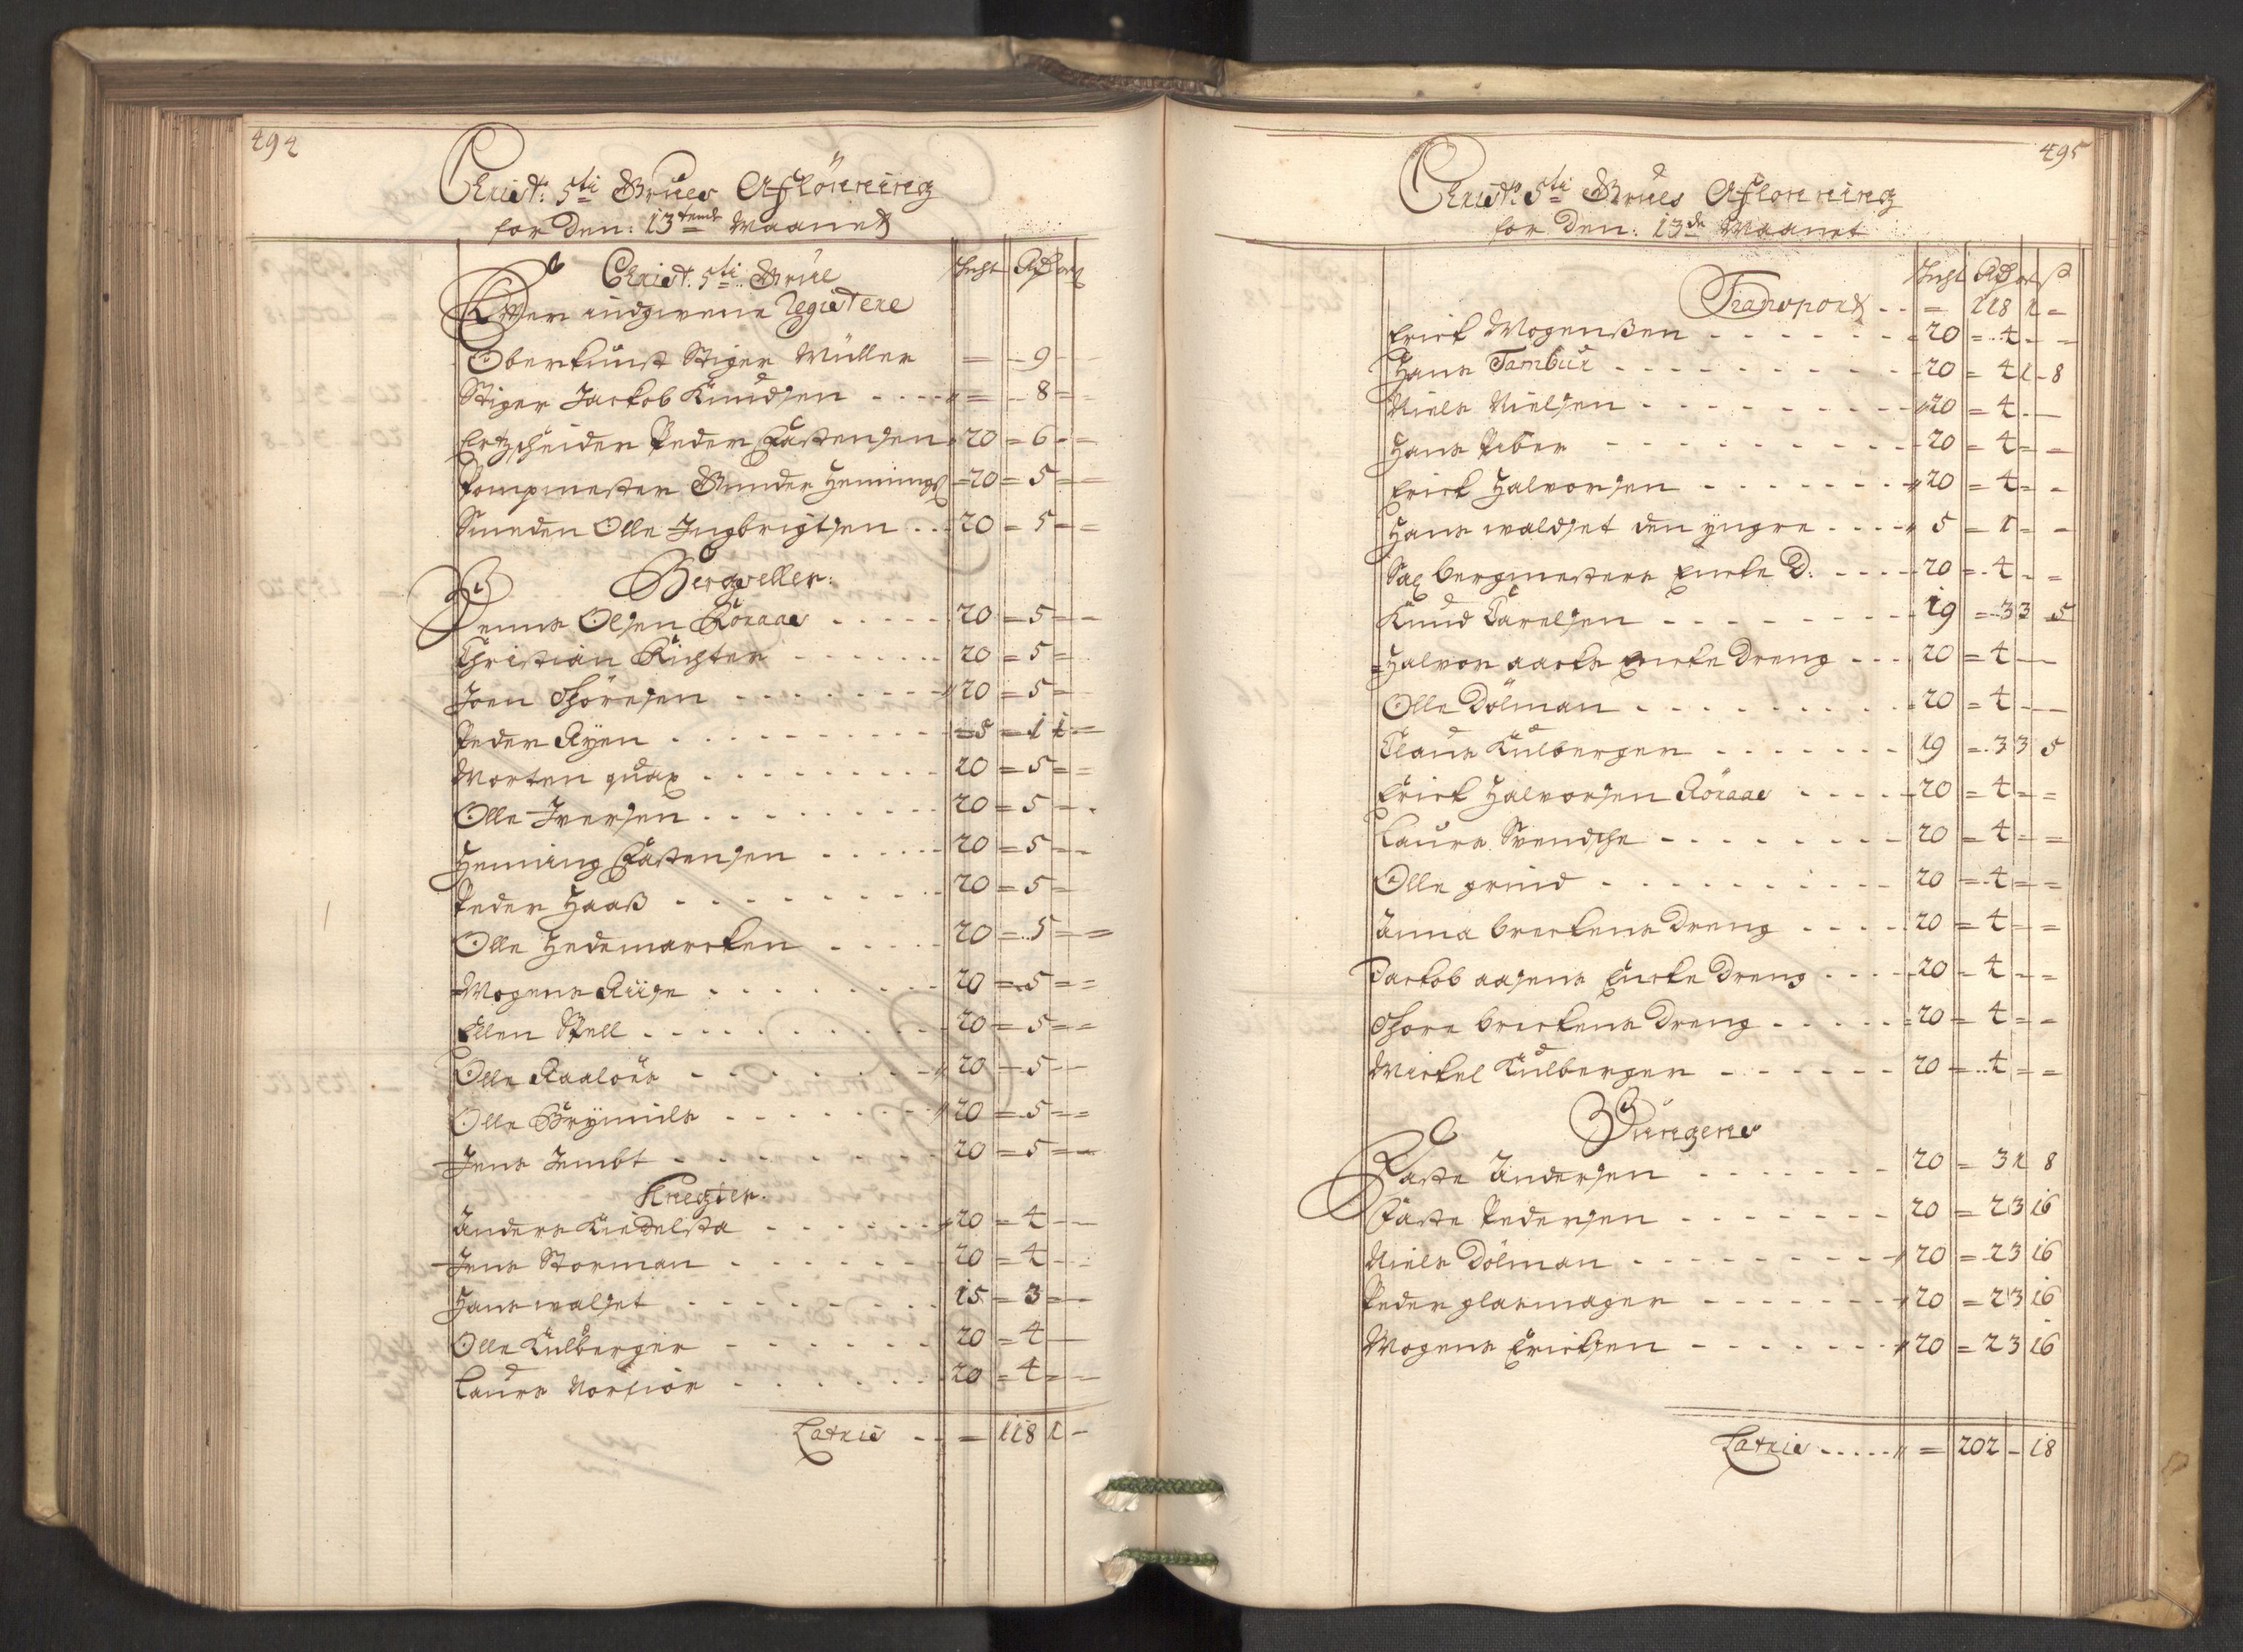 494
Christ: 5ti Grues Aflönning
for Den: 13tende Maanet
Christ. 5ti Grue
Efter indgivene Registere
Schst Rdr ort
Oberkunst Stiger Müller = - 9 - -
Stiger Jackob Knudsen . . . . = - 8 = -
Ertzscheider Peder Fastensen 20 = 6 - =
Pompmester Gunder Hennings = 20 = 5 = =
Smeden Olle Ingbrigtsen . . 20 = 5 - =
Bergveller:
Jenns Olsen Röraas . . . . . 20 = 5 = -
Christian Richter . . . . . . 20 = 5 =
Joen Thöresen . . . . . . . 20 = 5 =
Peder Ryen . . . . . . . . . 5 = 1 1 =
Morten quax . . . . . . . . . 20 = 5 = =
Olle Iversen . . . . . . . . 20 = 5 - -
Henning Fastensen . . . . . 20 = 5 - -
Peder Haaß . . . . . . . 20 = 5 =
Olle Hedemarcken . . . . . 20 = 5 = =
Mogens Riise . . . . . . . . 20 = 5 = =
Ellen Stell . . . . . . . . . . 20 = 5 = =
Olle Raaloes . . . . . . . . 20 = 5 - -
Olle Brymils . . . . . . . 20 = 5 = =
Jens Jembt . . . . . . . . . 20 = 5 = =
Knegter.
Anders Kiedelsta . . . . . . 20 = 4 - -
Jens Storman . . . . . . . 20 = 4 - -
Hans walset . . . . . . . . . 15 = 3 = -
Olle Kulberger . . . . . . . 20 = 4 -
Laurs Norfiör . . . . . . . 20 = 4 = -
Latris . . = 118 1 -
495
Christ: 5ti Grues Aflonning
for Den: 13de Maanet
Schst Rdr ort ß
Transport . . = 118 1 =
Erick Mogenßen . . . . . . . 20 = 4 - =
Hans Tambur . . . . . . . . . 20 = 4 1 - 8
Niels Nielsen . . . . . . . . 20 = 4 - -
Hans Piber . . . . . . . . . 20 = 4 = =
Erick Halvorsen . . . . . . . 20 = 4 = =
Hans waldset den yngre . . . . 5 = 1 = =
Sal bergmesters Encke D: . . . . 20 = 4 - =
Knud Carelsen . . . . . . . . 19 = 3 3 5
Halvor aacks Encke Dreng . . . 20 = 4 - -
Olle Dölman . . . . . . . . . 20 = 4 - -
Claus Kulbergen . . . . . . . 19 = 3 3 5
Erick Halvorsen Röraas . . . . 20 = 4 - =
Laurs Svendske . . . . . . . . 20 = 4 - =
Olle grind . . . . . . . . . . 20 = 4 = =
Anna breckens Dreng . . . . 20 = 4 = =
Jackob aasens Encke Dreng . . . 20 = 4 - =
Thore breckens Dreng . . . . . 20 = 4 = =
Mickel Kulberger . . . . . . 20 = 4 = =
Büngens
Faste Andersen . . . . . . . 20 = 3 1 8
Faste Pedersen . . . . . . . 20 = 2 3 16
Niels Dölman . . . . . . . . 20 = 2 3 16
Peder glasmager . . . . . . . 20 = 2 3 16
Mogens Ericksen . . . . . . . 20 = 2 3 16
Latris . . . . . = 202 - 18